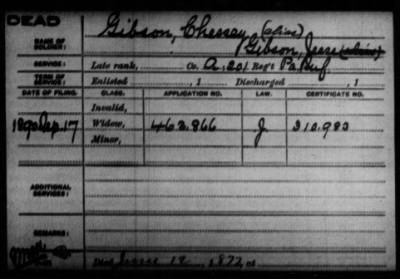 DEAD
NAME OF SOLDIER: Gibson, Chessey, (alias)
Gibson, Jesse (alias)
SERVICE: Late rank, Co. A, 201 Reg't Pa Inf
TERM OF SERVICE: Enlisted , 1 Discharged , 1
DATE OF FILING. CLASS. APPLICATION NO. LAW. CERTIFICATE NO.
Invalid,
1890 Sep. 17 Widow, 462.966 J 310.980
Minor,
ADDITIONAL SERVICES:
REMARKS:
Died June 12, 1872, at